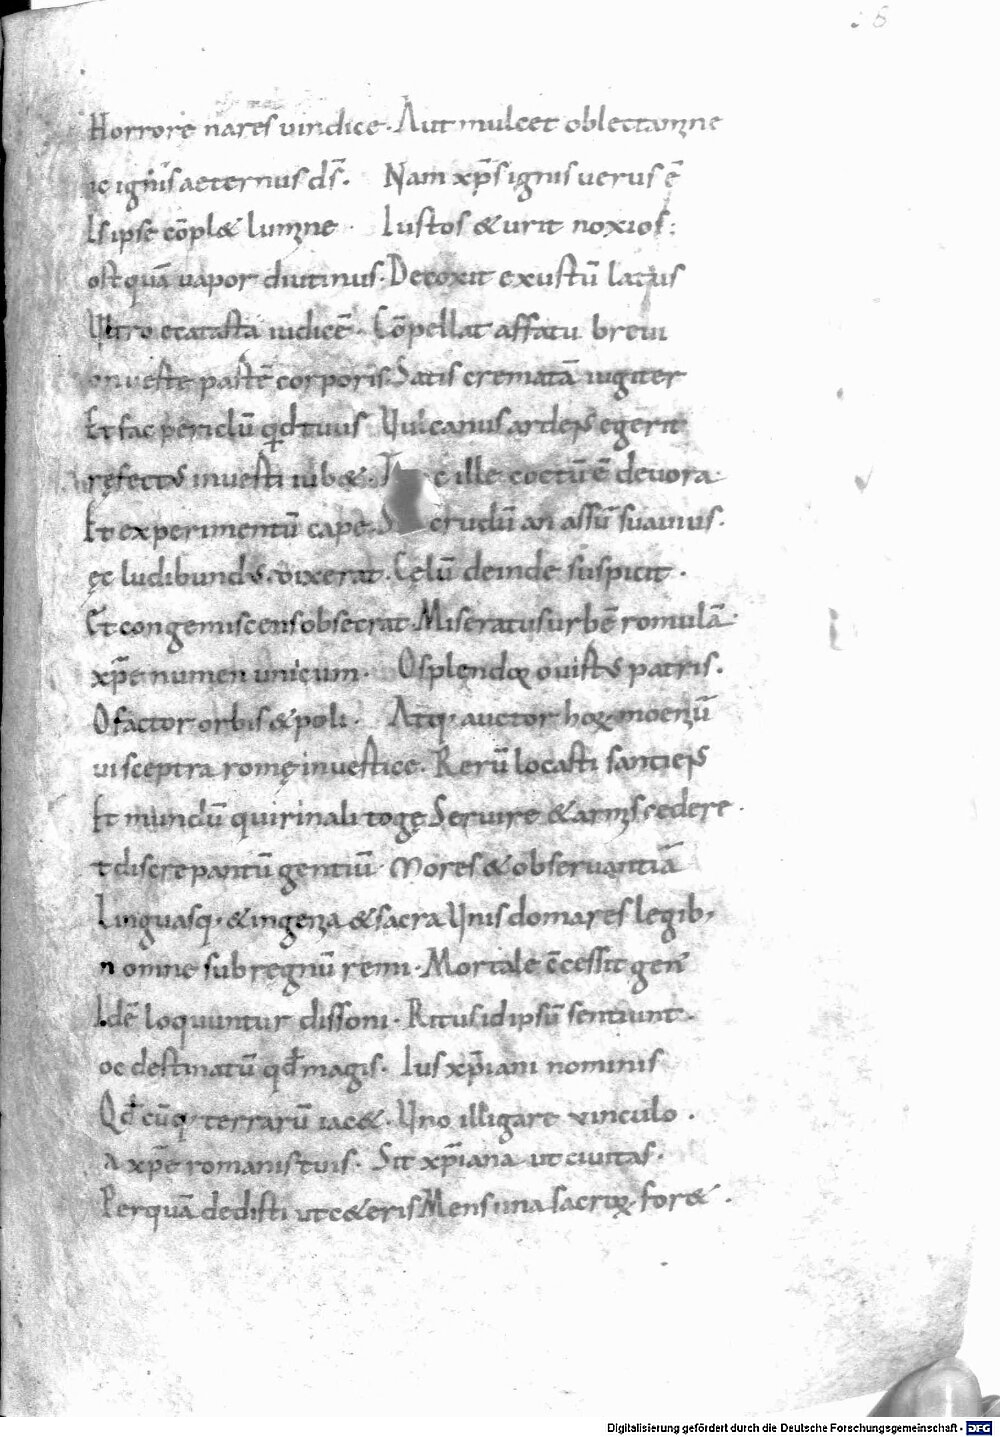 Horrore nares vindice. Aut mulcet oblectamine
ic ignis aeternus d̄s. Nam xp̄s ignis uerus ē
Is ipse cōpl& lumine. Iustos & urit noxios:
ostquā uapor diutinus. Decoxit exustū latus
Ultro ecatasta iudicē. Cōpellat affatu breui
onuerte partē corporis. Satis crematā iugiter
Et fac periclū qd tuus Uulcanus ardens egerit
ręfectus inuerti iub&. c ille coctū ē deuora.
Et experimentū cape. crudū an assū suauius.
ęc ludibundus dixerat. Cęlū deinde suspicit.
Et congemiscens obsecrat. Miseratus urbē romulā.
xp̄e numen unicum. O splendor o uirtus patris.
O factor orbis & poli. Atq; auctor hor moeniū
ui sceptra romę in uertice. Rerū locasti sanciens
Et mundū quirinali togę Seruire & armis cedere.
t discrepantū gentiū. Mores & obseruantiā
Linguasq; & ingenia & sacra Unis domares legib;
n omne sub regnū remi. Mortale c̄cessit gen
Idē loquuntur dissoni. Ritus id ipsū sentiunt.
oc destinatū qđ magis. Ius xp̄iani nominis
Qđ cūq; terrarū iac&. Uno illigaret vinculo.
a xp̄e romanis tuis. Sit xp̄iana ut ciuitas.
Per quā dedisti ut c&eris Mens una sacror for&.
Digitalisierung gefördert durch die Deutsche Forschungsgemeinschaft - DFG